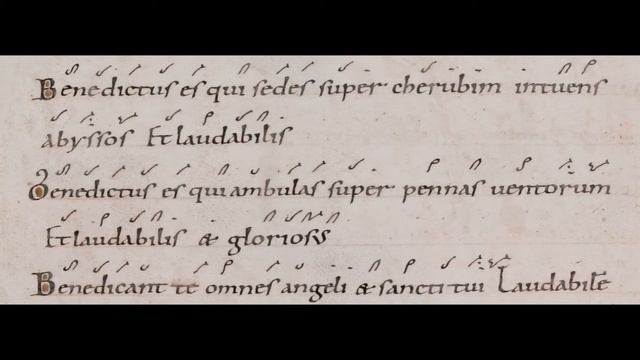 Benedictus es qui sedes super cherubim intuens
abyssos Et laudabilis
Benedictus es qui ambulas super pennas uentorum
Et laudabilis & gloriosus
Benedicant te omnes angeli & sancti tui Laudabile